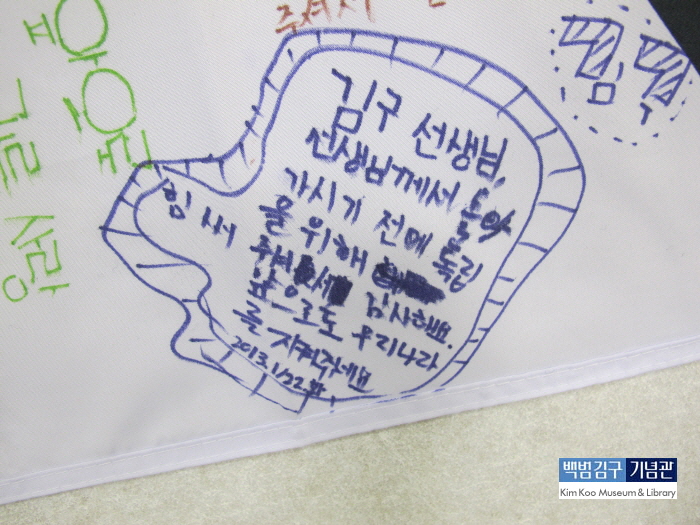 주셔서
김구
김구 선생님,
선생님께서 돌아
가시기 전에 독립
을 위해 힘써
주셔 감사해요.
앞으로도 우리나라
를 지켜주세요
2013.1/22.화
백범김구 기념관
Kim Koo Museum & Library